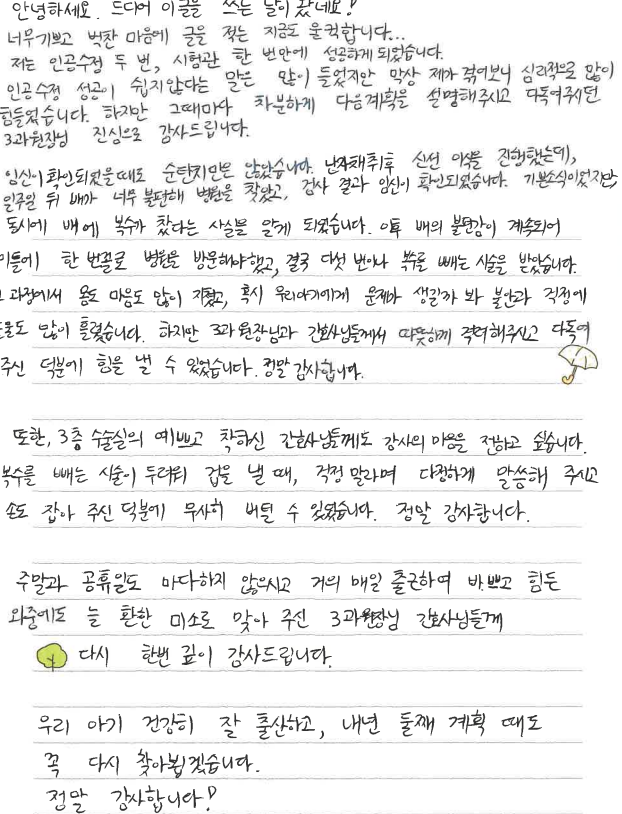 안녕하세요. 드디어 이글을 쓰는 날이 왔네요!
너무기쁘고 벅찬 마음에 글을 적는 지금도 울컥합니다...
저는 인공수정 두 번, 시험관 한 번만에 성공하게 되었습니다.
인공수정 성공이 쉽지않다는 말은 많이 들었지만 막상 제가 겪어보니 심리적으로 많이
힘들었습니다. 하지만 그때마다 차분하게 다음계획을 설명해주시고 다독여주시던
3과원장님 진심으로 감사드립니다.
임신이확인되었을때도 순탄치만은 않았습니다. 난자채취후 신선 이식을 진행했는데,
일주일 뒤 배가 너무 불편해 병원을 찾았고, 검사 결과 임신이 확인되었습니다. 기쁜소식이었지만,
동시에 배에 복수가 찼다는 사실을 알게 되었습니다. 이후 배의 불편감이 계속되어
이틀에 한 번꼴로 병원을 방문해야했고, 결국 다섯 번이나 복수를 빼는 시술을 받았습니다.
그 과정에서 몸도 마음도 많이 지쳤고, 혹시 우리아기에게 문제가 생길까 봐 불안과 걱정에
눈물도 많이 흘렸습니다. 하지만 3과원장님과 간호사님들께서 따뜻하게 격려해주시고 다독여
주신 덕분에 힘을 낼 수 있었습니다. 정말 감사합니다.
또한, 3층 수술실의 예쁘고 착하신 간호사님들께도 감사의 마음을 전하고 싶습니다.
복수를 빼는 시술이 두려워 겁을 낼 때, 걱정 말라며 다정하게 말씀해 주시고
손도 잡아 주신 덕분에 무사히 버틸 수 있었습니다. 정말 감사합니다.
주말과 공휴일도 마다하지 않으시고 거의 매일 출근하여 바쁘고 힘든
와중에도 늘 환한 미소로 맞아 주신 3과원장님 간호사님들께
다시 한번 깊이 감사드립니다.
우리 아기 건강히 잘 출산하고, 내년 둘째 계획 때도
꼭 다시 찾아뵙겠습니다.
정말 감사합니다!